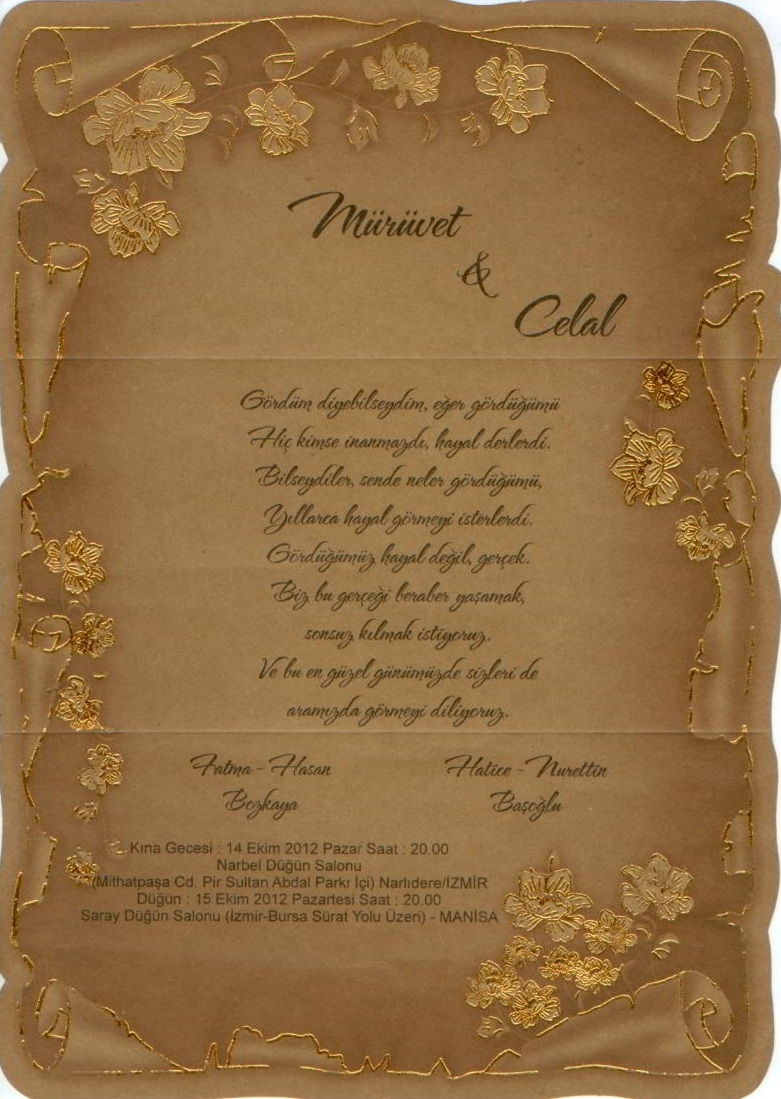 Mürüvet
&
Celal
Gördüm diyebilseydim, eğer gördüğümü
Hiç kimse inanmazdı, hayal derlerdi.
Bilseydiler, sende neler gördüğümü,
Yıllarca hayal görmeyi isterlerdi.
Gördüğümüz hayal değil, gerçek.
Biz bu gerçeği beraber yaşamak,
sonsuz kılmak istiyoruz.
Ve bu en güzel günümüzde sizleri de
aramızda görmeyi diliyoruz.
Fatma - Hasan
Bozkaya
Hatice - Nurettin
Başoğlu
Kına Gecesi : 14 Ekim 2012 Pazar Saat : 20.00
Narbel Düğün Salonu
(Mithatpaşa Cd. Pir Sultan Abdal Parkı İçi) Narlıdere/İZMİR
Düğün : 15 Ekim 2012 Pazartesi Saat : 20.00
Saray Düğün Salonu (İzmir-Bursa Sürat Yolu Üzeri) - MANİSA